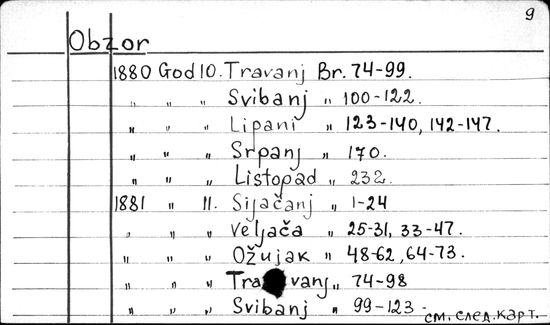 9
Obzor
1880 God 10. Travanj Br. 74-99.
„ „ „ Svibanj „ 100-122.
„ „ „ Lipani „ 123-140, 142-147.
„ „ „ Srpanj „ 170.
„ „ „ Listopad „ 232.
1881 „ 11. Siječanj „ 1-24
„ „ „ Veljača „ 25-31, 33-47.
„ „ „ Ožujak „ 48-62, 64-73.
„ „ „ Travanj „ 74-98
„ „ „ Svibanj „ 99-123-
см. след. карт.